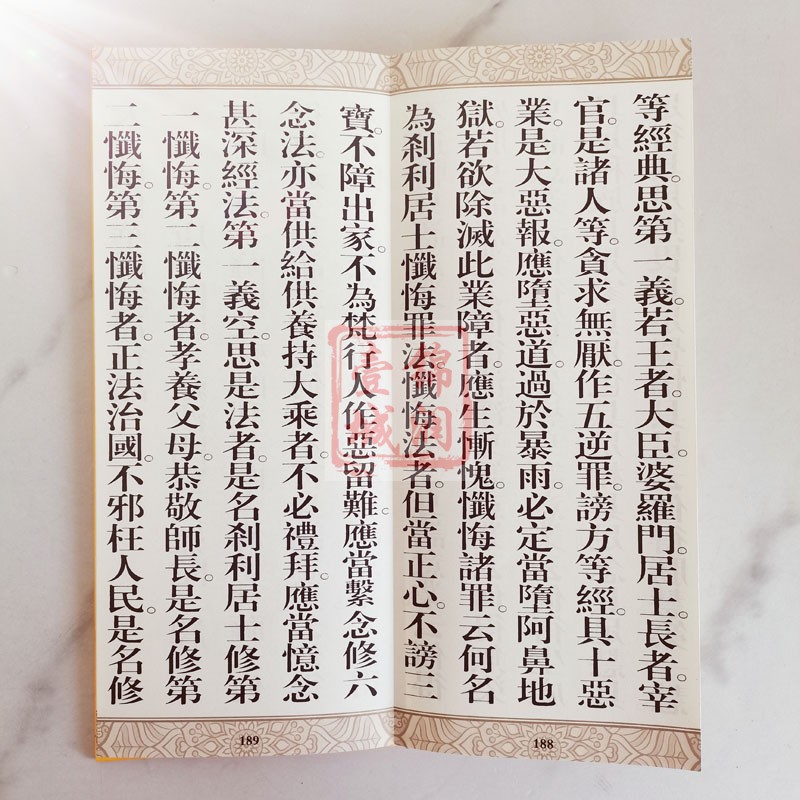 等經典。思第一義。若王者。大臣。婆羅門。居士。長者。宰
官。是諸人等。貪求無厭。作五逆罪。謗方等經。具十惡
業。是大惡報。應墮惡道。過於暴雨。必定當墮阿鼻地
獄。若欲除滅此業障者。應生慚愧。懺悔諸罪。云何名
為剎利居士懺悔罪法。懺悔法者。但當正心。不謗三
寶。不障出家。不為梵行人作惡留難。應當繫念修六
念法。亦當供給供養持大乘者。不必禮拜。應當憶念
甚深經法。第一義空。思是法者。是名剎利居士修第
一懺悔。第二懺悔者。孝養父母。恭敬師長。是名修第
二懺悔。第三懺悔者。正法治國。不邪枉人民。是名修
188
189